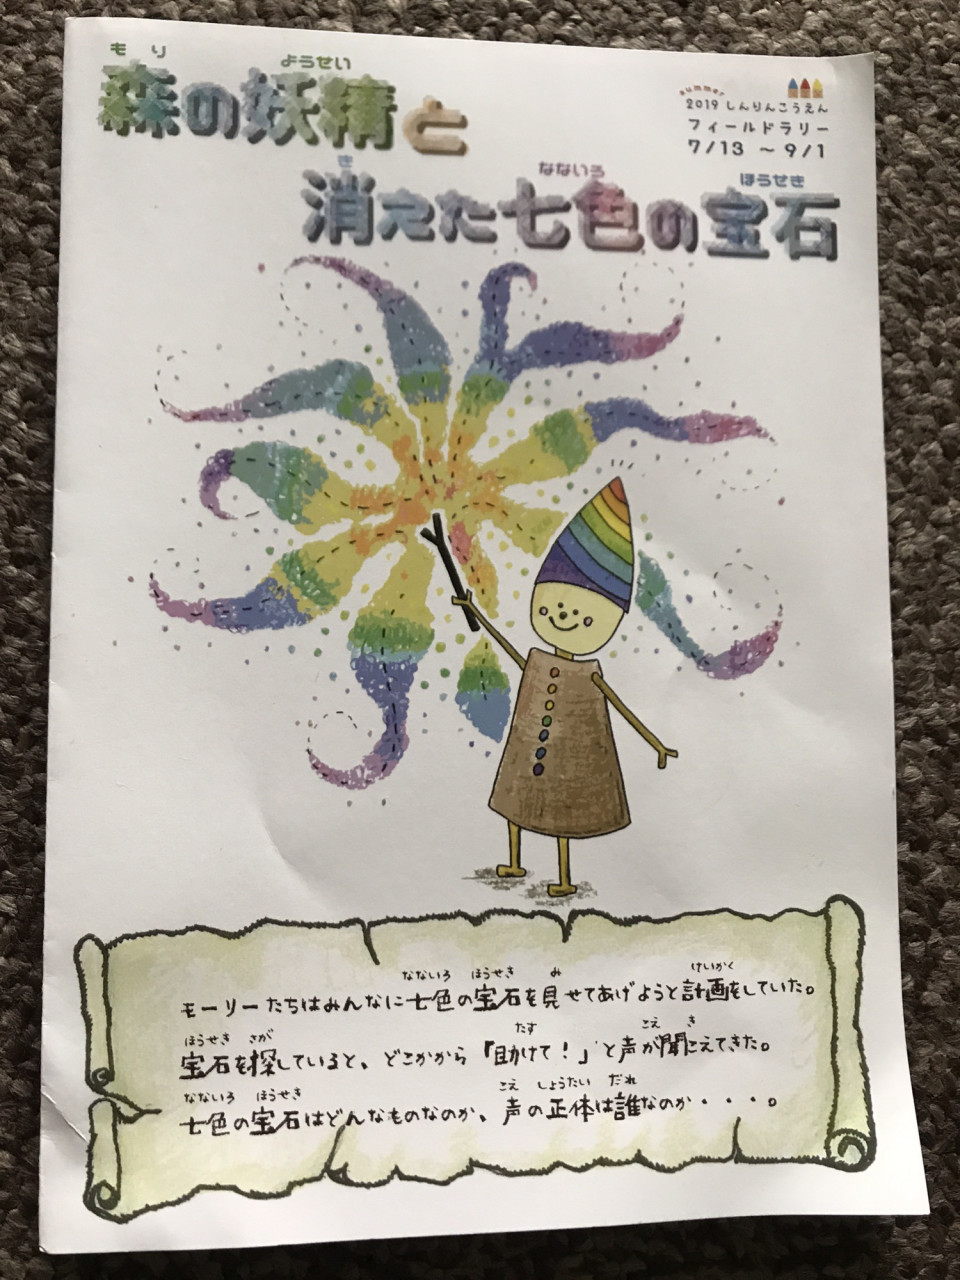 もり ようせい
森の妖精と
summer
2019 しんりんこうえん
フィールドラリー
7/13 ～ 9/1
き なないろ ほうせき
消えた七色の宝石
なないろ ほうせき み けいかく
モーリーたちはみんなに七色の宝石を見せてあげようと計画をしていた。
ほうせき さが たす こえ き
宝石を探していると、どこかから「助けて！」と声が聞こえてきた。
なないろ ほうせき こえ しょうたい だれ
七色の宝石はどんなものなのか、声の正体は誰なのか・・・・。